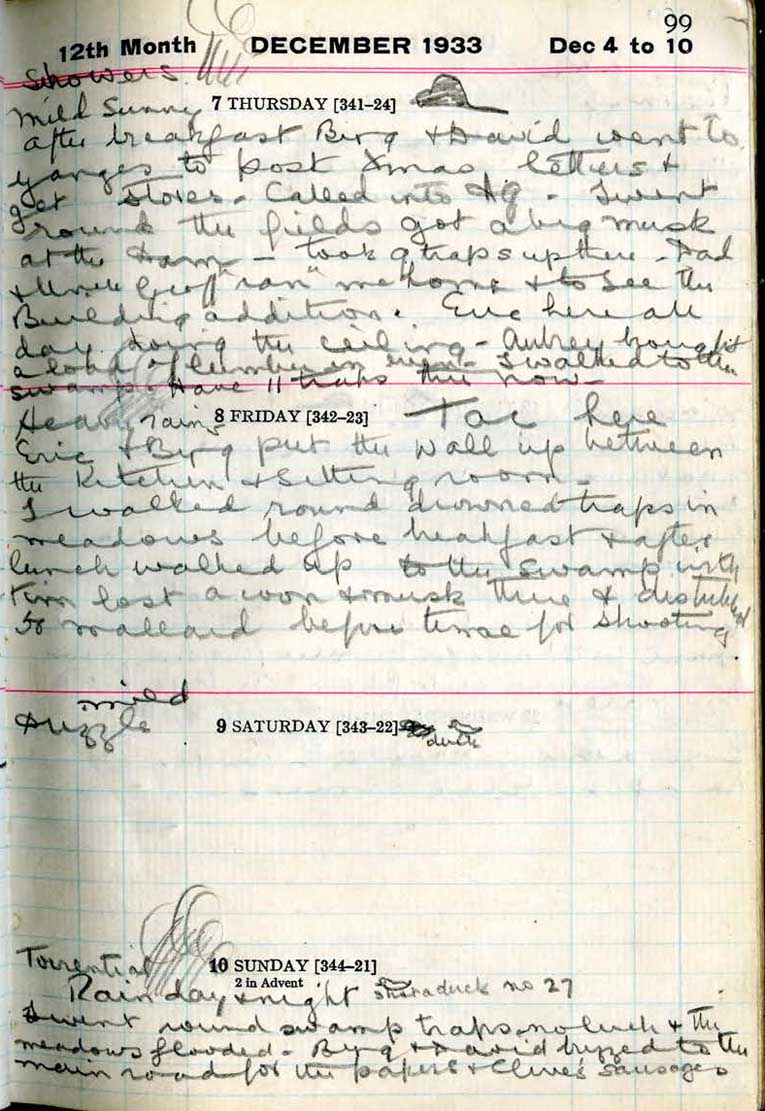 99
12th Month DECEMBER 1933 Dec 4 to 10
Showers
Mild Sunny 7 THURSDAY [341–24]
after breakfast Berg & David went to
yanges to post Xmas letters &
get stores. Called into - I went
round the fields got a big musk
at the dam - took 9 traps up there - Dad
& Uncle Geoff "ran" me home & to see the
Building addition. Eric here all
day doing the ceiling - Aubrey brought
a load of lumber in - I walked to the
swamp. Have 11 traps there now -
Heavy rains 8 FRIDAY [342–23] Tac here
Eric & Berg put the wall up between
the Kitchen & Sitting room.
I walked round drowned traps in
meadows before breakfast & after
lunch walked up to the swamp with
Tim lost a coon & musk there & disturbed
50 mallard before time for shooting.
mild
Drizzle 9 SATURDAY [343–22]
duck
Torrential 10 SUNDAY [344–21]
2 in Advent
Rain day & night shot a duck no 27
I went round swamp traps, no luck & the
meadows flooded. Berg & David buzzed to the
main road for the papers & Clive's sausages